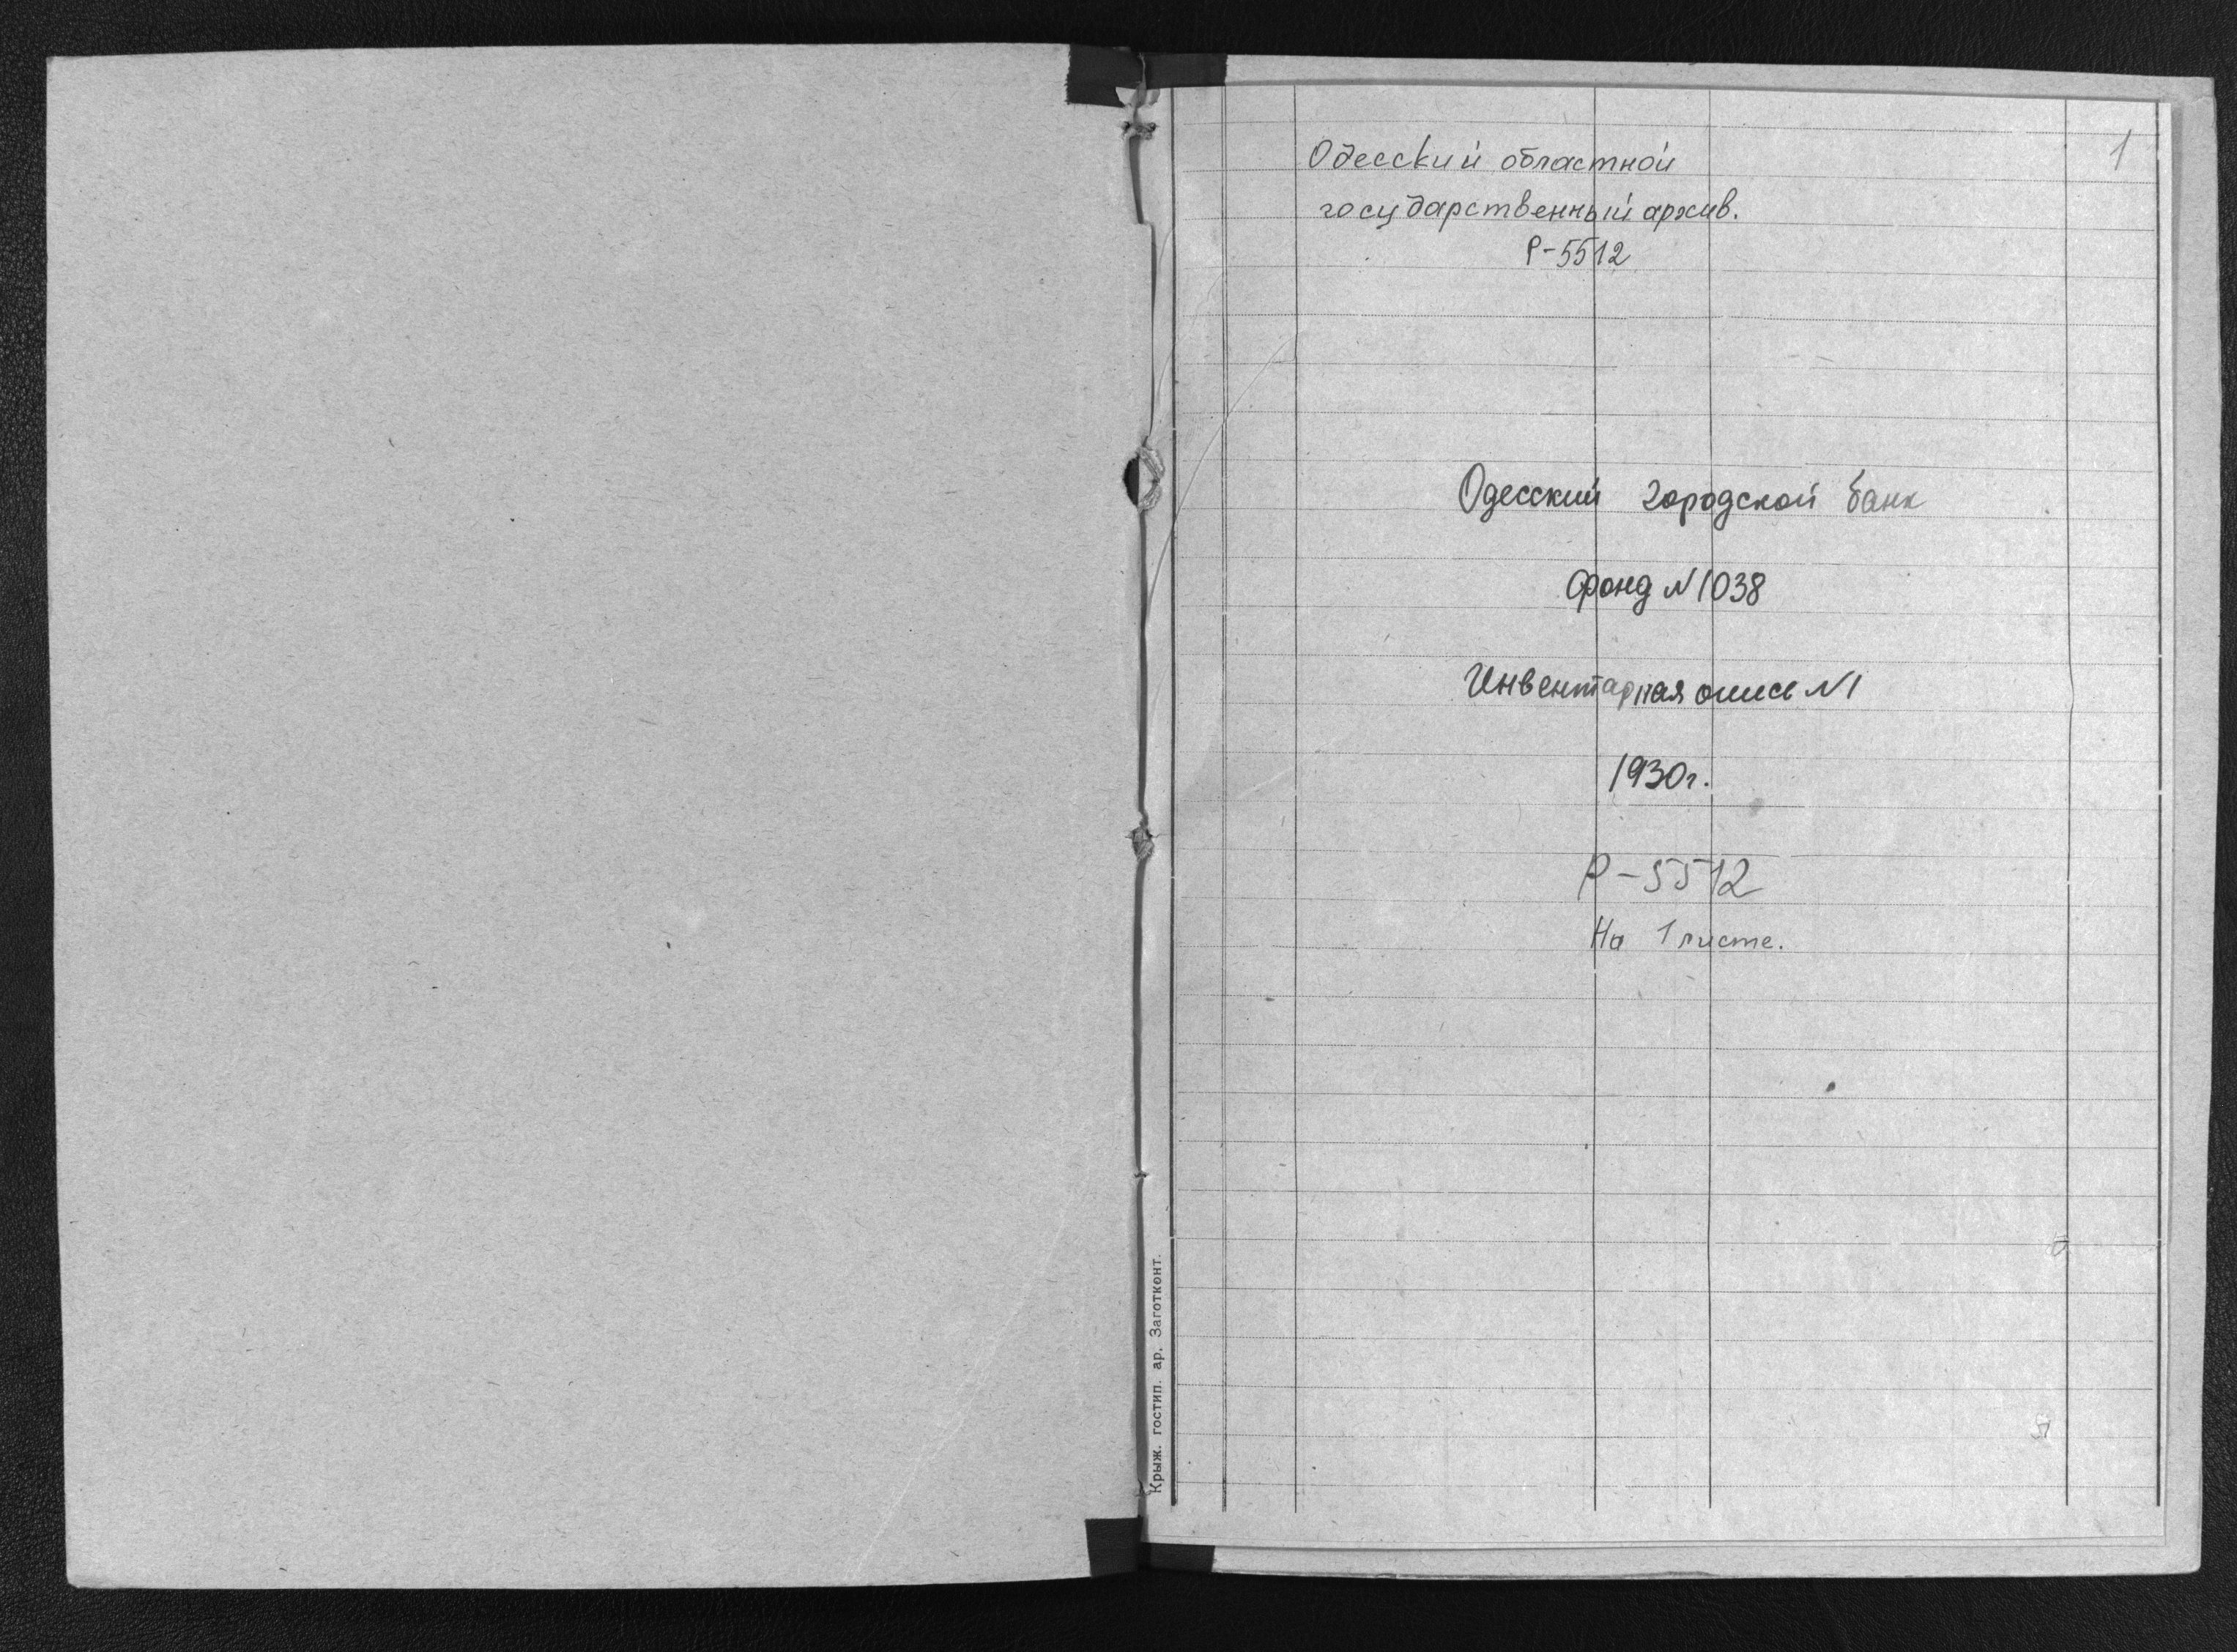 1
Одесский областной
государственный архив.
Р-5512
Одесский городской банк
Фонд N 1038
Инвентарная опись N 1
1930г.
Р-5512
На 1 листе.
Крыж. гостип. ар. Заготконт.